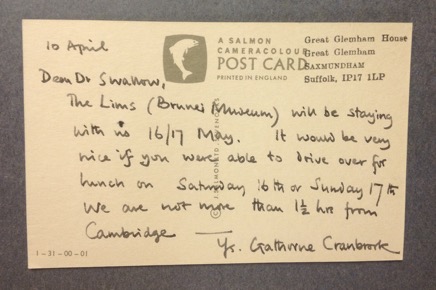 10 April
A SALMON
CAMERACOLOUR
POST CARD
PRINTED IN ENGLAND
Great Glemham House
Great Glemham
SAXMUNDHAM
Suffolk, IP17 1LP
Dear Dr Swallow,
The Lims (Brunei Museum) will be staying
with us 16/17 May. It would be very
nice if you were able to drive over for
lunch on Saturday, 16th or Sunday 17th
We are not more than 1½ hrs from
Cambridge —
Yrs. Gathorne Cranbrook
1-31-00-01